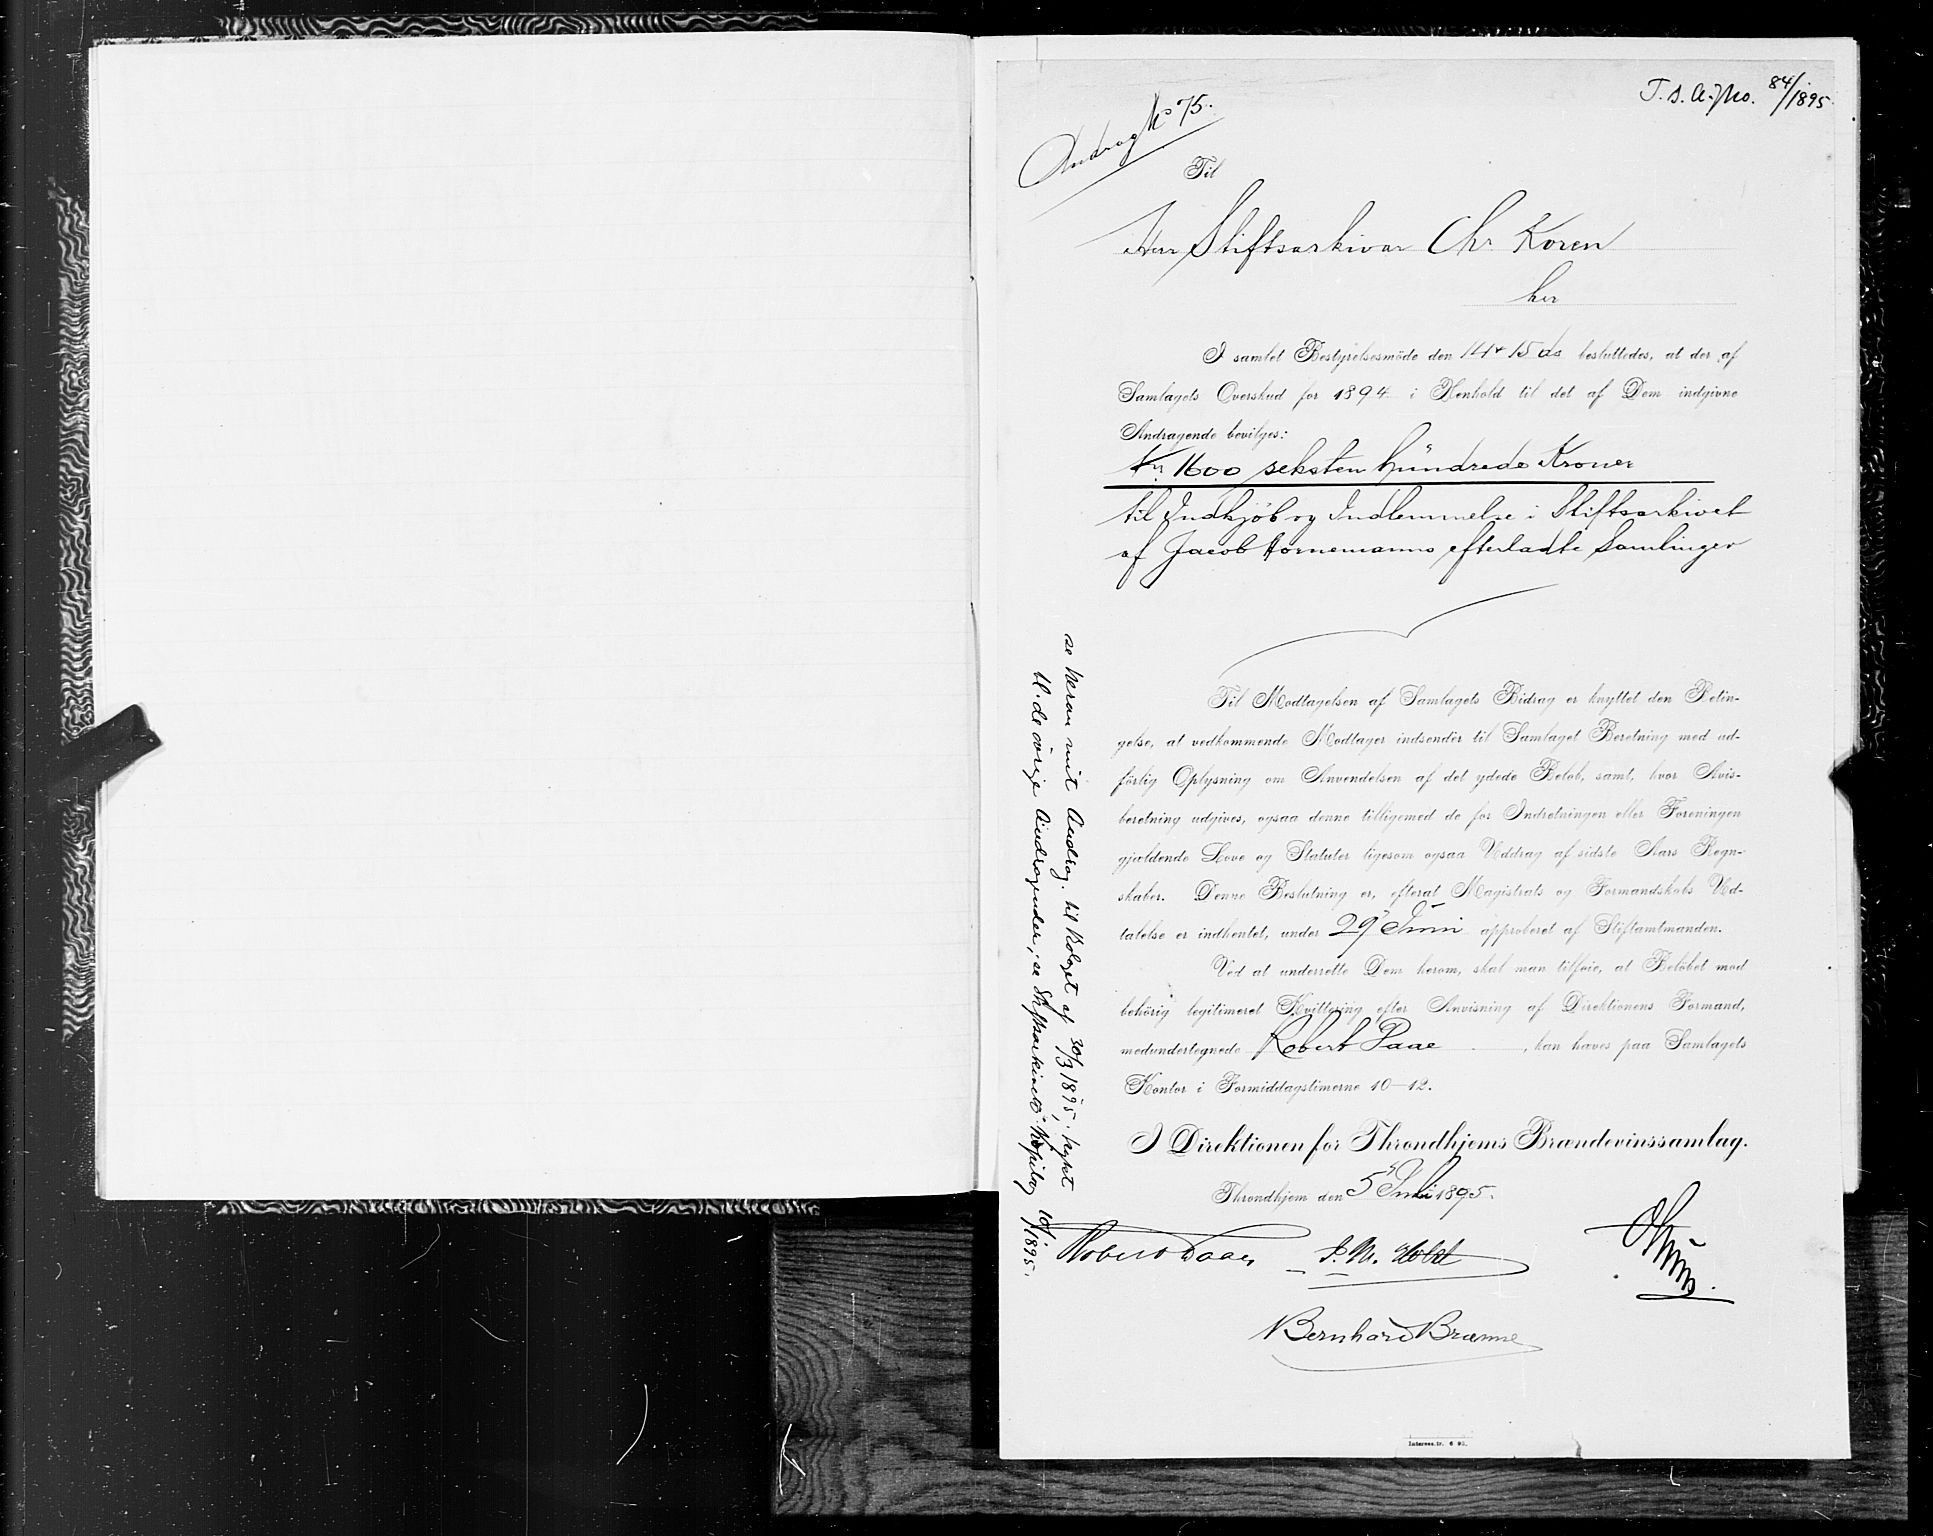 T. S. A. J No. 84/1895
Andrag No 75.
Til
Herr Stiftsarkivar Chr. Koren
her
I samlet Bestyrelsesmöde den 14 & 15 ds besluttedes, at der af
Samlagets Overskud for 1894 i Henhold til det af Dem indgivne
Andragende bevilges:
Kr. 1600 seksten hündrede Kroner
til Indkjöb og Indlemmelse i Stiftsarkivet
af Jacob Hornemanns efterladte Samlinger
Til Modtagelsen af Samlagets Bidrag er knyttet den Betin-
gelse, at vedkommende Modtager indsender til Samlaget Beretning med ud-
förlig Oplysning om Anvendelsen af det ydede Belöb, samt, hvor Avis-
beretning udgives, ogsaa denne tilligemed de for Indretningen eller Foreningen
gjældende Love og Statuter ligesom ogsaa Uddrag af sidste Aars Regn-
skaber. Denne Beslutning er, efterat Magistrats og Formandskabs Ud-
talelse er indhentet, under 29 Juni approberet af Stiftamtmanden.
Ved at underrette Dem herom, skal man tilföie, at Belöbet mod
behörig legitimeret Kvittering efter Anvisning af Direktionens Formand,
medundertegnede Robert Paae, kan hæves paa Samlagets
Kontor i Formiddagstimerne 10—12.
I Direktionen for Throndhjems Brændevinssamlag.
Throndhjem den 5 Juli 1895.
Robert Paae
Bernhard Brænne
se heran mit Andrag. til Bolaget af 30/3 1895,
bl. de övrige Andragender, se Stiftsarkivets Kopibog 10/1 1895.
Interess.tr. 6 95.